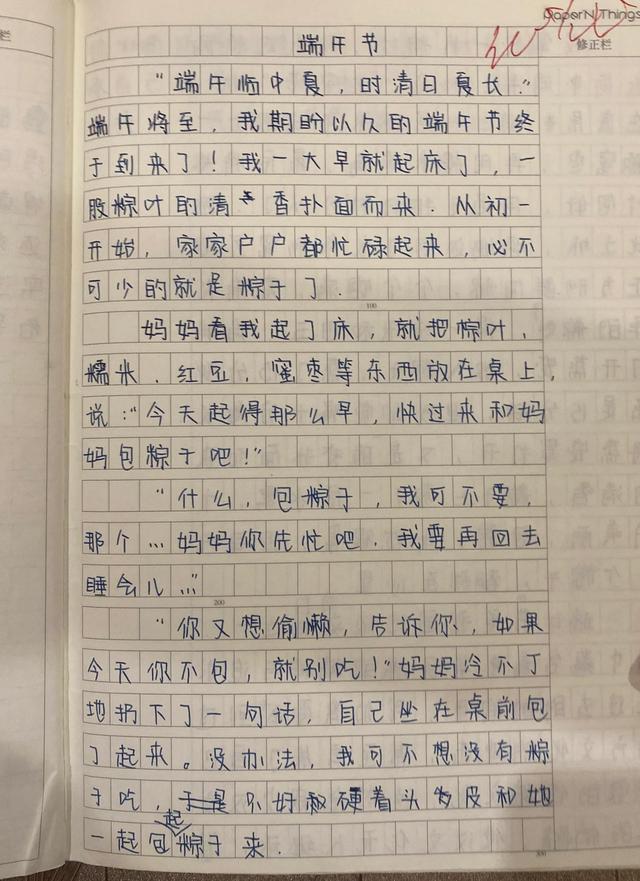 PaperN Things
修正栏
端午节
“端午临中夏，时清日夏长。”
端午将至，我期盼以久的端午节终
于到来了！我一大早就起床了，一
股粽叶的清香扑面而来．从初一
开始，家家户户都忙碌起来，必不
可少的就是粽子了．
100
妈妈看我起了床，就把粽叶，
糯米．红豆，蜜枣等东西放在桌上，
说：“今天起得那么早，快过来和妈
妈包粽子吧！”
“什么，包粽子，我可不要，
那个…妈妈你先忙吧．我要再回去
睡会儿…”
200
“你又想偷懒，告诉你、如果
今天你不包，就别吃！”妈妈冷不丁
地扔下了一句话，自己坐在桌前包
了起来。没办法，我可不想没有粽
子吃，于是只好硬着头皮和她
一起包起粽子来．
300